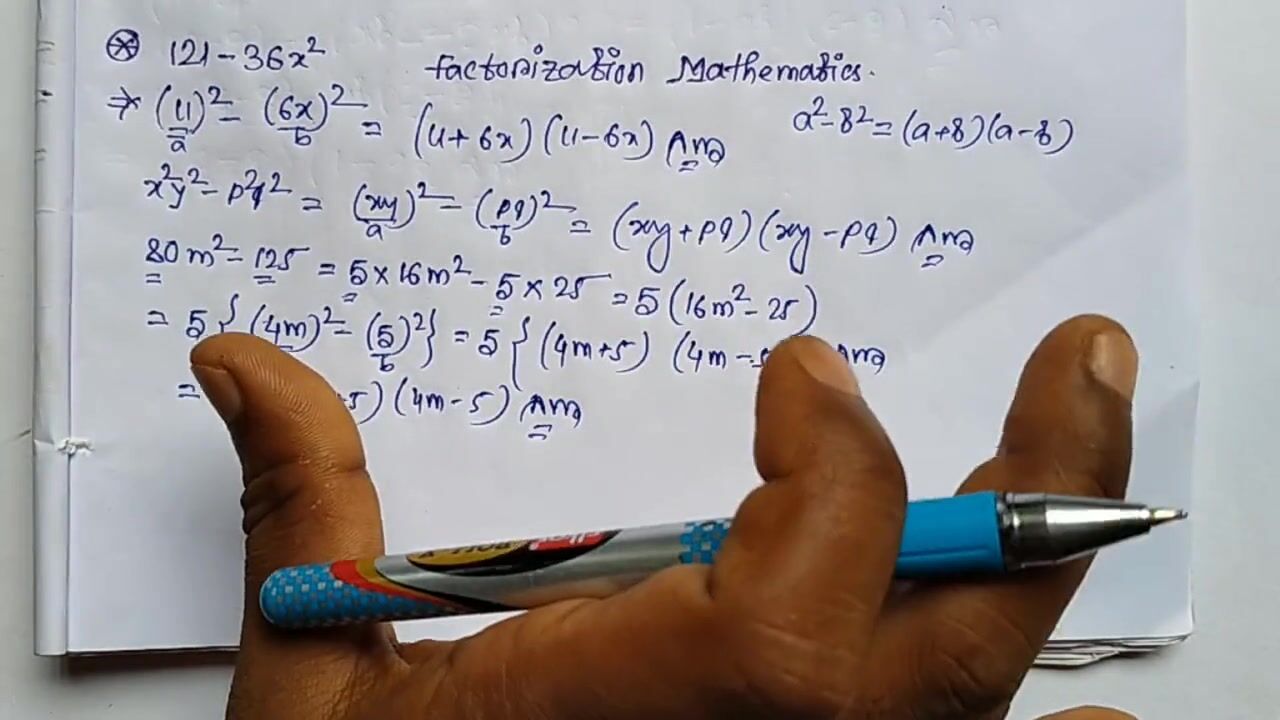 121 - 36x² Factorization Mathematics.
⇒ (11)² - (6x)² = (11 + 6x) (11 - 6x) Ans a² - b² = (a+b)(a-b)
a b
x²y² - p²q² = (xy)² - (pq)² = (xy + pq) (xy - pq) Ans
a b
80m² - 125 = 5 × 16m² - 5 × 25 = 5 (16m² - 25)
= 5 { (4m)² - (5)² } = 5 { (4m+5) (4m - Ans
b
= 5) (4m - 5) Ans